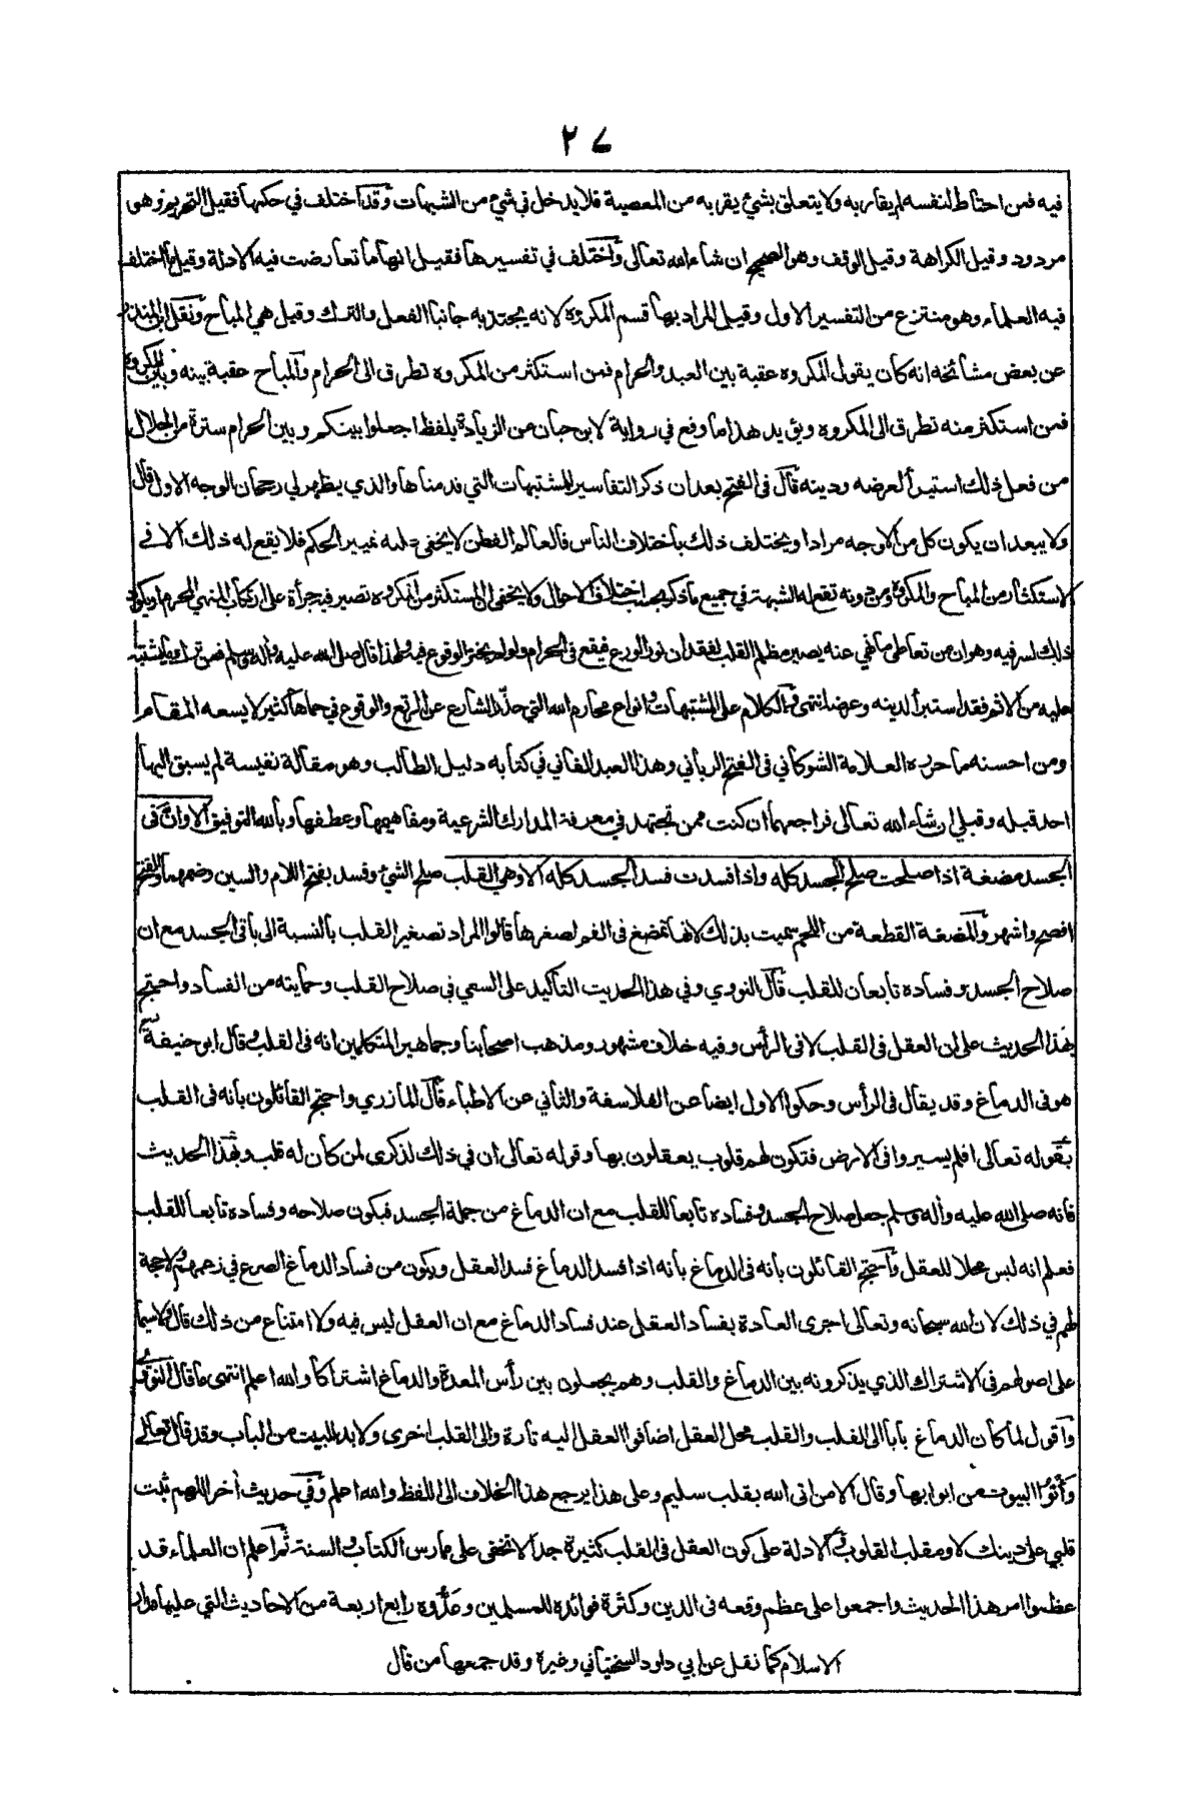 ٢٧
فيه فمن احتاط لنفسه لم يقاربه ولا يتعلق بشيء يقربه من المعصية فلا يدخل في شيء من الشبهات وقد اختلف في حكمها فقيل التحريم وهو
مردود وقيل الكراهة وقيل الوقف وهو الصحيح ان شاء الله تعالى واختلف في تفسيرها فقيل انها ما تعارضت فيه الادلة وقيل ما اختلف
فيه العلماء وهو منتزع من التفسير الاول وقيل المراد بها قسم المكروه لانه يجتذبه جانبا الفعل والترك وقيل هي المباح ونقل ابن المنذر
عن بعض مشائخه انه كان يقول المكروه عقبة بين العبد والحرام فمن استكثر من المكروه تطرق الى الحرام والمباح عقبة بينه وبين المكروه
فمن استكثر منه تطرق الى المكروه ويؤيد هذا ما وقع في رواية لابن حبان من الزيادة بلفظ اجعلوا بينكم وبين الحرام سترة من الحلال
من فعل ذلك استبرأ لعرضه ودينه قال فى الفتح بعد ان ذكر التفاسير للمشتبهات التي قدمناها والذي يظهر لي رجحان الوجه الاول قال
ولا يبعد ان يكون كل من الاوجه مرادا ويختلف ذلك باختلاف الناس فالعالم الفطن لا يخفى عليه تمييز الحكم فلا يقع له ذلك الا في
الاستكثار من المباح والمكروه ومن دونه تقع له الشبهة في جميع ما ذكر بحسب اختلاف الاحوال ولا يخفى ان المستكثر من المكروه تصير فيه جرأة على ارتكاب المنهي المحرم او يكون
ذلك لسر فيه وهو ان من تعاطى ما نهي عنه يصير مظلم القلب لفقدان نور الورع فيقع فى الحرام ولو لم يختر الوقوع فيه ولهذا قال صلى الله عليه وآله وسلم فمن ترك ما يشتبه
عليه من الاثم فقد استبرأ لدينه وعرضه انتهى وفي الكلام على المشتبهات وانواع محارم الله التي حذر الشارع عن الرتع والوقوع في حماها كثير لا يسعه المقام
ومن احسنه ما حرره العلامة الشوكاني فى الفتح الرباني وهذا العبد الفاني في كتابه دليل الطالب وهو مقالة نفيسة لم يسبق اليها
احد قبله وقبلي ان شاء الله تعالى فراجعهما ان كنت ممن تجتهد في معرفة المدارك الشرعية ومفاهيمها وعطفها وبالله التوفيق الا وان فى
الجسد مضغة اذا صلحت صلح الجسد كله واذا فسدت فسد الجسد كله الا وهي القلب صلح الشيء وفسد بفتح اللام والسين وضمهما والفتح
افصح واشهر والمضغة القطعة من اللحم سميت بذلك لانها تمضغ فى الفم لصغرها قالوا المراد تصغير القلب بالنسبة الى باقى الجسد مع ان
صلاح الجسد وفساده تابعان للقلب قال النووي وفي هذا الحديث التأكيد على السعي فى صلاح القلب وحمايته من الفساد واحتج
بهذا الحديث على ان العقل فى القلب لا فى الرأس وفيه خلاف مشهور ومذهب اصحابنا وجماهير المتكلمين انه فى القلب وقال ابو حنيفة
هو فى الدماغ وقد يقال فى الرأس وحكوا الاول ايضا عن الفلاسفة والثاني عن الاطباء قال المازري واحتج القائلون بانه فى القلب
بقوله تعالى افلم يسيروا فى الارض فتكون لهم قلوب يعقلون بها وقوله تعالى ان في ذلك لذكرى لمن كان له قلب وبهذا الحديث
فانه صلى الله عليه وآله وسلم جعل صلاح الجسد وفساده تابعا للقلب مع ان الدماغ من جملة الجسد فيكون صلاحه وفساده تابعا للقلب
فعلم انه ليس محلا للعقل واحتج القائلون بانه فى الدماغ بانه اذا فسد الدماغ فسد العقل ويكون من فساد الدماغ الصرع في زعمهم ولا حجة
لهم في ذلك لان الله سبحانه وتعالى اجرى العادة بفساد العقل عند فساد الدماغ مع ان العقل ليس فيه ولا امتناع من ذلك قال ولا سيما
على اصولهم فى الاشتراك الذي يذكرونه بين الدماغ والقلب وهم يجعلون بين رأس المعدة والدماغ اشتراكا والله اعلم انتهى ما قال النووي
واقول لما كان الدماغ بابا الى القلب والقلب محل العقل اضافوا العقل اليه تارة والى القلب اخرى ولا بد للبيت من الباب وقد قال تعالى
وأتوا البيوت من ابوابها وقال الا من اتى الله بقلب سليم وعلى هذا يرجع هذا الخلاف الى اللفظ والله اعلم وفي حديث آخر اللهم ثبت
قلبي على دينك لا ومقلب القلوب والادلة على كون العقل فى القلب كثيرة جدا لا تخفى على ممارس الكتاب والسنة ثم اعلم ان العلماء قد
عظموا امر هذا الحديث واجمعوا على عظم وقعه فى الدين وكثرة فوائده للمسلمين وعدوه رابع اربعة من الاحاديث التي عليها مدار
الاسلام كما نقل عن ابي داود السختياني وغيره وقد جمعها من قال